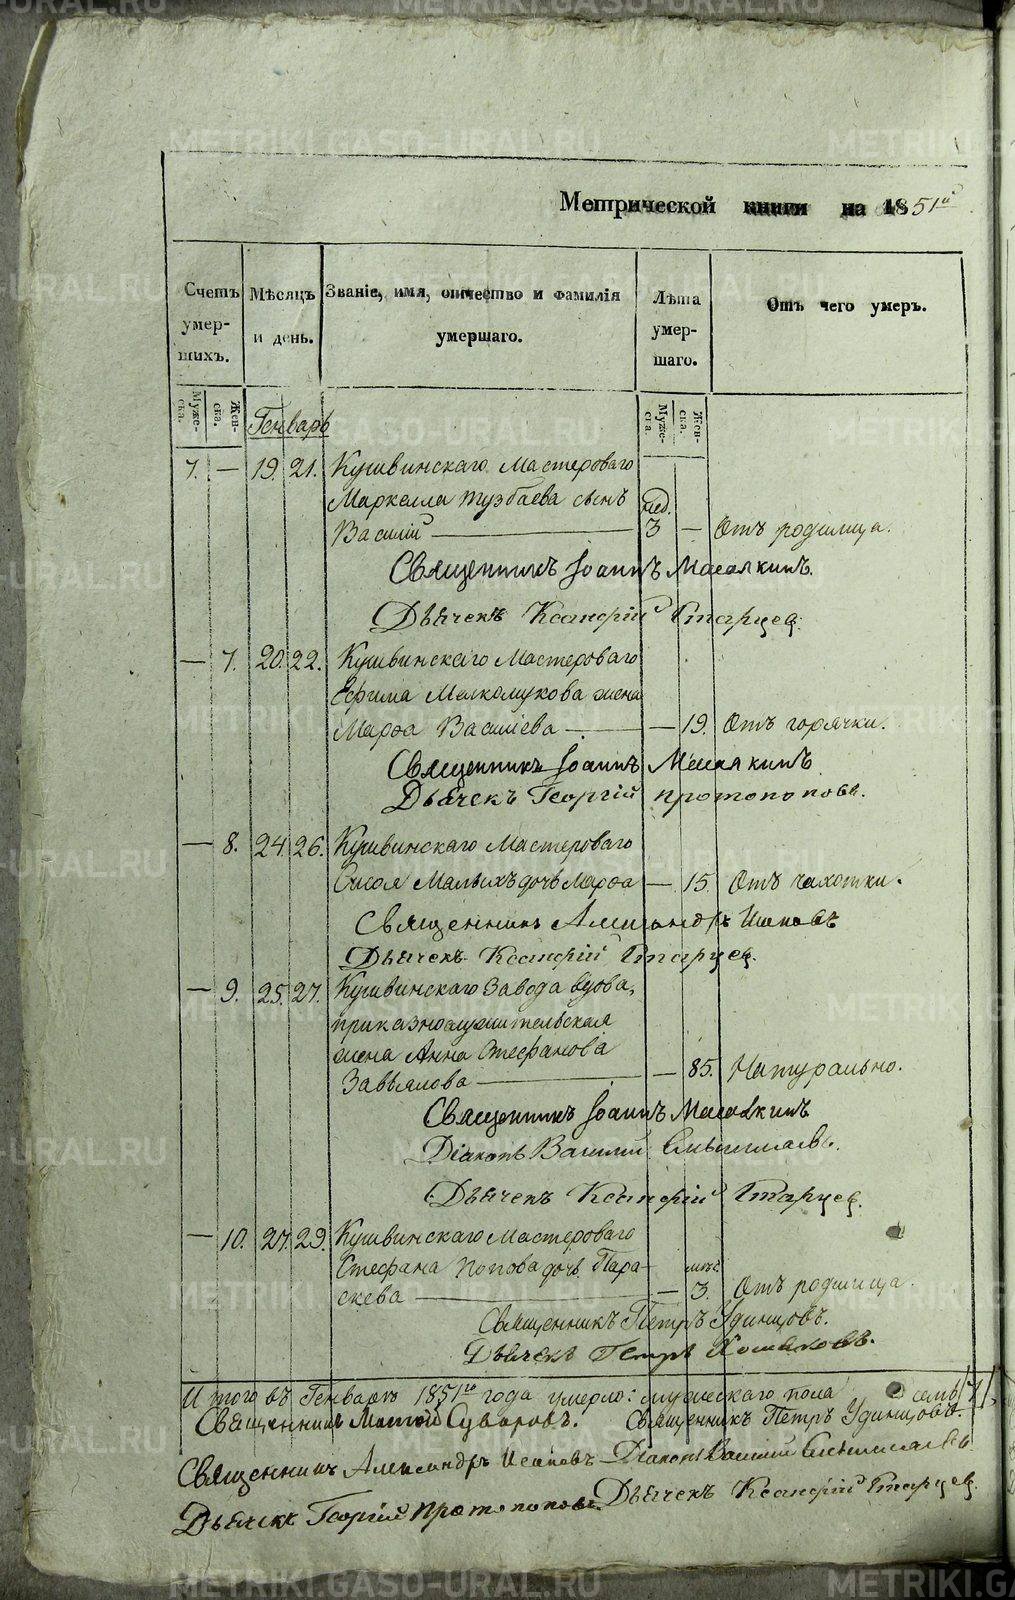 METRIKI.GASO-URAL.RU
Метрической книги на 1851й
Счетъ умер- шихъ.
Мѣсяцъ и день.
Званіе, имя, отчество и фамилія умершаго.
Лѣта умер- шаго.
Отъ чего умеръ.
Муже- ска.
Жен- ска.
Муже- ска.
Жен- ска.
Генварь
7. — 19. 21. Кушвинскаго Мастероваго
Маркелла Тузбаева сынъ нед.
Василій — 3 — Отъ родимца.
Священникъ Іоаннъ
Дьячекъ Ксанѳрій Старцев.
— 7. 20. 22. Кушвинскаго Мастероваго
Ефима жена
Марѳа Василіева — — 19. Отъ горячки.
Священникъ Іоаннъ
Дьячекъ Георгій Протопоповъ.
— 8. 24. 26. Кушвинскаго Мастероваго
Сисоя Малыхъ дочь Марѳа — 15. Отъ чахотки.
Священникъ Александръ
Дьячекъ Ксанѳрій Старцев.
— 9. 25. 27. Кушвинскаго Завода вдова,
приказнослужительская
жена Анна Стефанова
Завьялова — — 85. Натурально.
Священникъ Іоаннъ
Діаконъ Василій
Дьячекъ Ксанѳрій Старцев.
— 10. 27. 29. Кушвинскаго Мастероваго
Стефана Попова дочь Пара-
скева — — 3. Отъ родимца.
Священникъ Петръ Удинцовъ.
Дьячекъ Петръ Хомяковъ.
Итого въ Генварѣ 1851го года умерло: мужескаго пола семь /7/
Священникъ Матѳей Суворовъ. Священникъ Петръ Удинцовъ.
Священникъ Александръ Діаконъ Василій
Дьячекъ Георгій Протопоповъ. Дьячекъ Ксанѳрій Старцев.